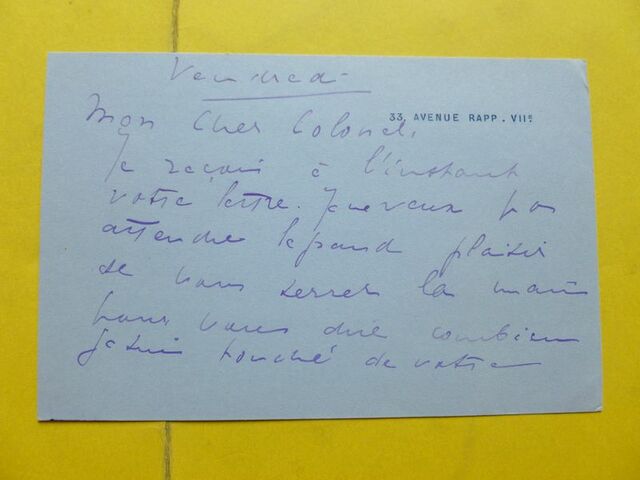 Vendredi
33, AVENUE RAPP. VIIe
Mon Cher Colonel,
Je reçois à l'instant
votre lettre. Je ne veux pas
attendre le grand plaisir
de vous serrer la main
pour vous dire combien
je suis touché de votre